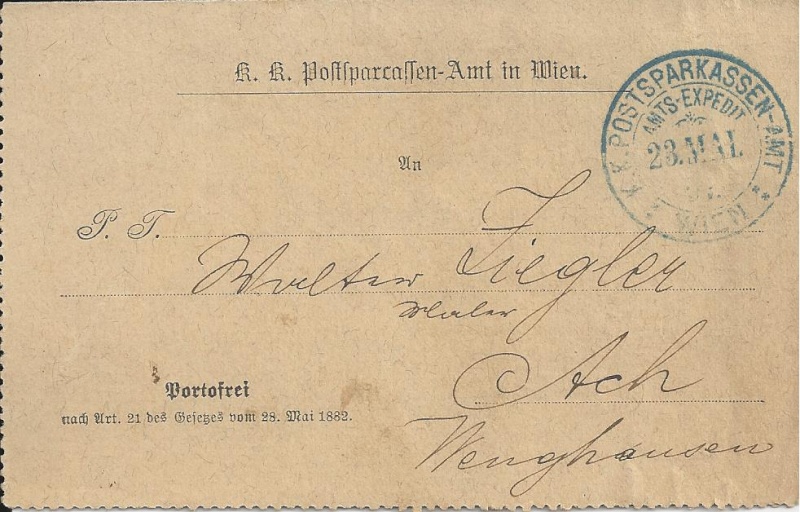 K. K. Postsparcassen-Amt in Wien.
K. K. POSTSPARKASSEN-AMT
AMTS-EXPEDIT
23. MAI.
WIEN
An
P. T.
Walter Ziegler
Maler
Ach
Wenghausen
Portofrei
nach Art. 21 des Gesetzes vom 28. Mai 1882.